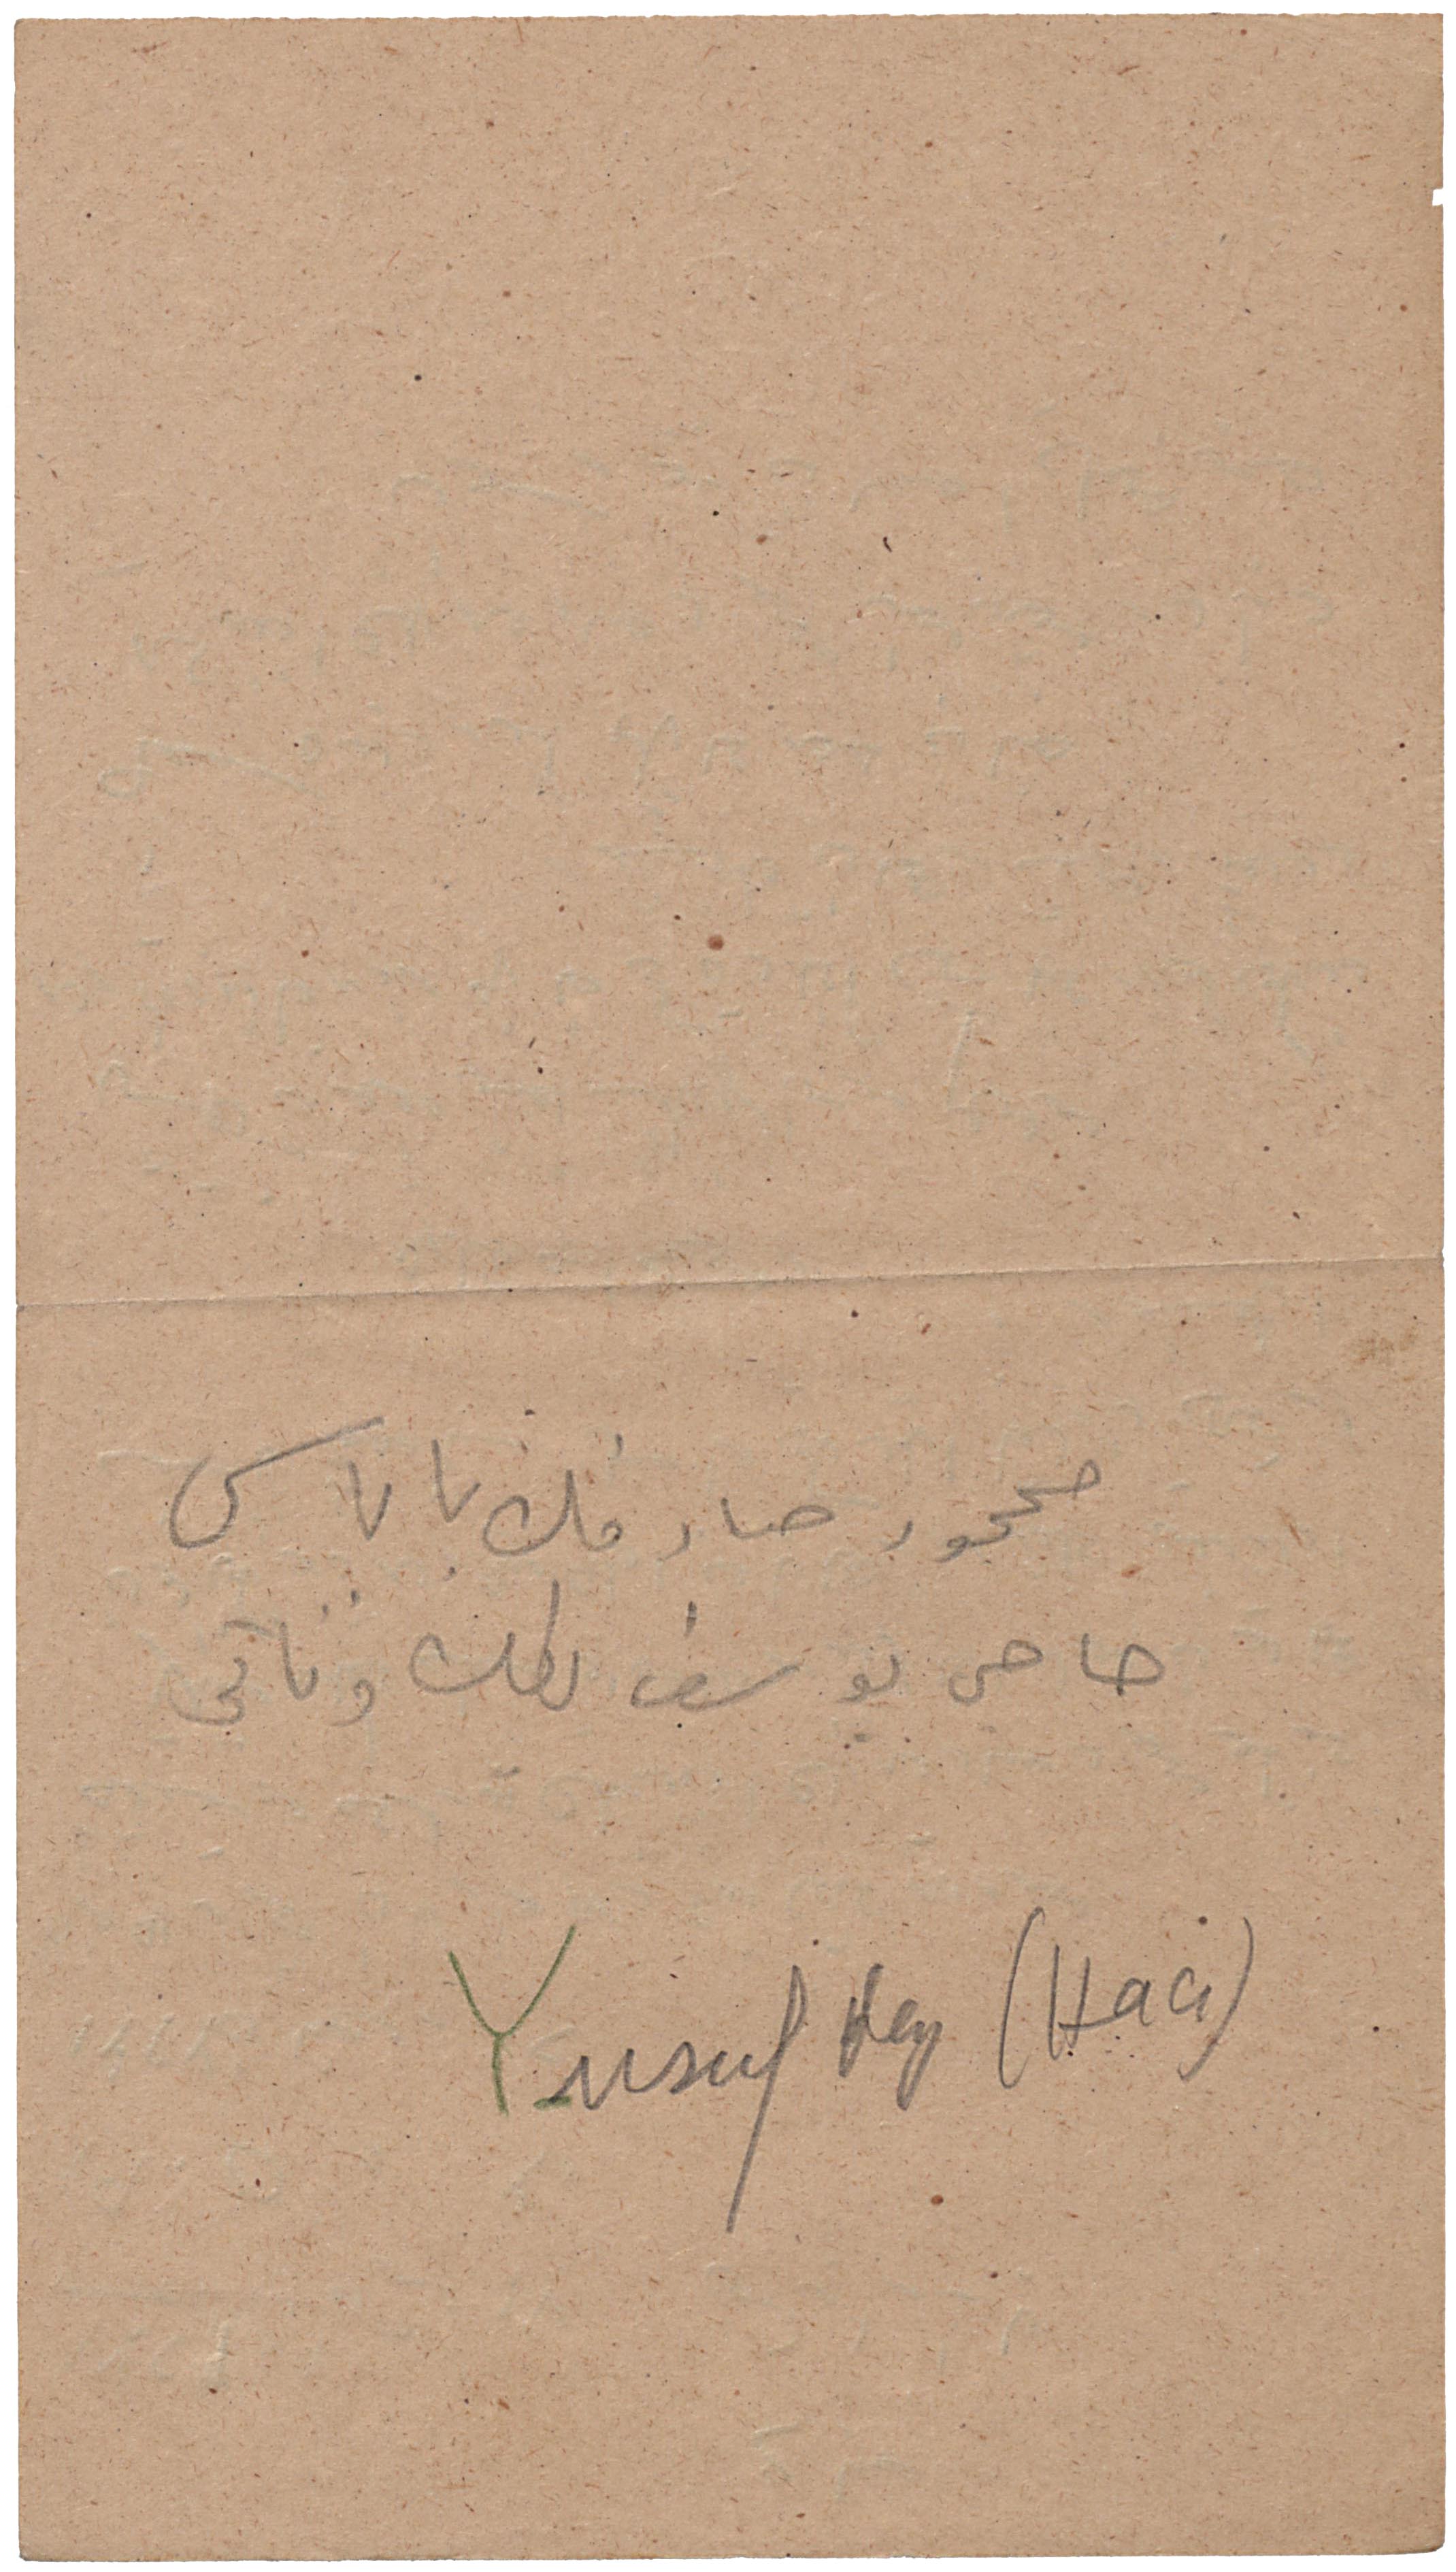 محمود صادقك باباسى
حاجى يوسف بكك وفاتى
Yusuf Bey (Hacı)